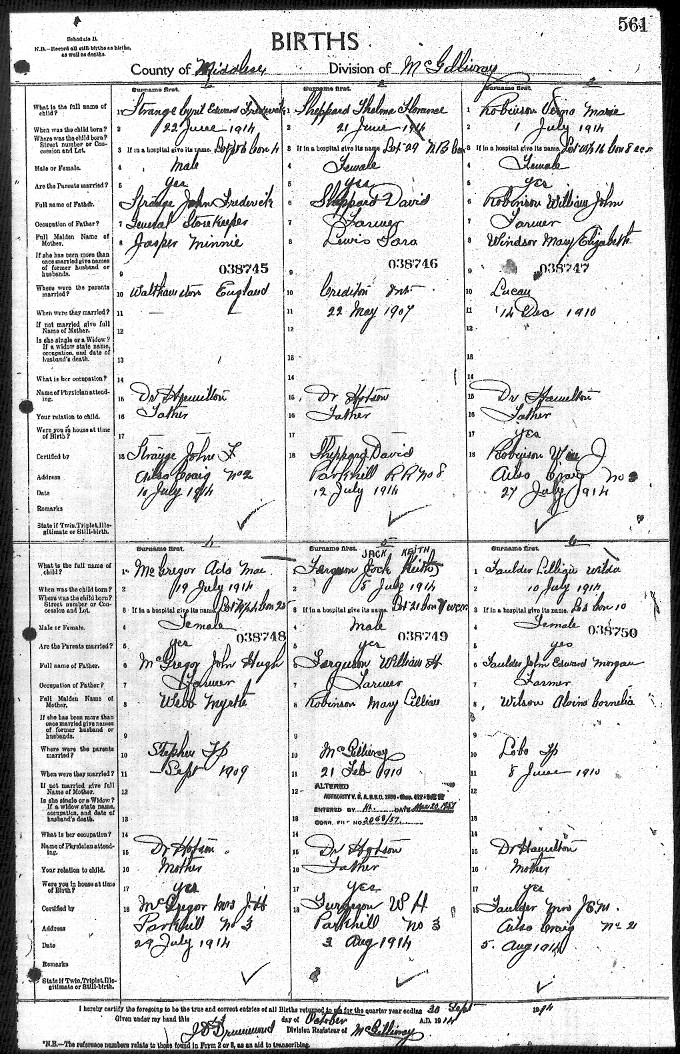 561
Schedule B.
N.B.—Record all still births as births, as well as deaths.
BIRTHS
County of Middlesex Division of McGillivray
1 2 3
Surname first. Surname first. Surname first.
What is the full name of child? 1 Strange Cyril Edward Frederick 1 Sheppard Thelma Florance 1 Robinson Verna Marie
When was the child born? 2 22 June 1914 2 21 June 1914 2 1 July 1914
Where was the child born? Street number or Concession and Lot. 3 If in a hospital give its name. Lot 6 Con 4 3 If in a hospital give its name. Lot 29 N.B. Con 3 If in a hospital give its name. Lot 16 Con 8
Male or Female. 4 Male 4 Female 4 Female
Are the Parents married? 5 Yes 5 Yes 5 Yes
Full name of Father. 6 Strange John Frederick 6 Sheppard David 6 Robinson William John
Occupation of Father? 7 General Storekeeper 7 Farmer 7 Farmer
Full Maiden Name of Mother. 8 Jasper Minnie 8 Lewis Sara 8 Windsor Mary Elizabeth
If she has been more than once married give names of former husband or husbands. 9 038745 9 038746 9 038747
Where were the parents married? 10 Walthamston England 10 Crediton Ont 10 Lucan
When were they married? 11 — 11 22 May 1907 11 14 Dec 1910
If not married give full Name of Mother. 12
Is she single or a Widow? If a widow state name, occupation, and date of husband's death. 13
What is her occupation? 14 14 14
Name of Physician attending. 15 Dr Hamilton 15 Dr Hotson 15 Dr Hamilton
Your relation to child. 16 Father 16 Father 16 Father
Were you in house at time of Birth? 17 17 17 yes
Certified by 18 Strange John F 18 Sheppard David 18 Robinson Wm J
Address Ailsa Craig No 2 Parkhill R R No 8 Ailsa Craig No
Date 10 July 1914 12 July 1914 27 July 1914
Remarks
State if Twin, Triplet, Illegitimate or Still-birth.
4 5 6
Surname first. Surname first. Surname first.
JACK KEITH
What is the full name of child? 1 McGregor Ada Mae 1 Ferguson Jock Keith 1 Faulder Lillian Wilda
When was the child born? 2 19 July 1914 2 5 July 1914 2 10 July 1914
Where was the child born? Street number or Concession and Lot. 3 If in a hospital give its name. Lot Con 25 3 If in a hospital give its name. Lot 21 Con 3 If in a hospital give its name. Lot Con 10
Male or Female. 4 Female 4 Male 4 Female
038748 038749 038750
Are the Parents married? 5 yes 5 yes 5 yes
Full name of Father. 6 McGregor John Hugh 6 Ferguson William H 6 Faulder John Edward Morgan
Occupation of Father? 7 Farmer 7 Farmer 7 Farmer
Full Maiden Name of Mother. 8 Webb Myrtle 8 Robinson Mary Lillian 8 Wilson Alvina Cornelia
If she has been more than once married give names of former husband or husbands. 9 9 9
Where were the parents married? 10 Stephen Tp 10 McGillivray 10 Lobo Tp
When were they married? 11 — Sept 1909 11 21 Feb 1910 11 8 June 1910
If not married give full Name of Mother. 12 ALTERED
Is she single or a Widow? If a widow state name, occupation, and date of husband's death. 13 ENTERED BY DATE
CORR. FILE NO. 2058/57
What is her occupation? 14 14 14
Name of Physician attending. 15 Dr Hotson 15 Dr Hotson 15 Dr Hamilton
Your relation to child. 16 Mother 16 Father 16 Mother
Were you in house at time of Birth? 17 Yes 17 Yes 17 yes
Certified by 18 McGregor Mrs J H 18 Furgeson W H 18 Faulder Mrs J E M.
Address Parkhill No 3 Parkhill No 3 Ailsa Craig No 2
Date 29 July 1914 3 Aug 1914 5 Aug 1914
Remarks
State if Twin, Triplet, Illegitimate or Still-birth.
I hereby certify the foregoing to be the true and correct entries of all Births returned to me for the quarter year ending 30 Sept 1914
Given under my hand this day of October A.D. 1914
J D Drummond Division Registrar of McGillivray
*N.B.—The reference numbers relate to those found in Form 2 or 3, as an aid to transcribing.